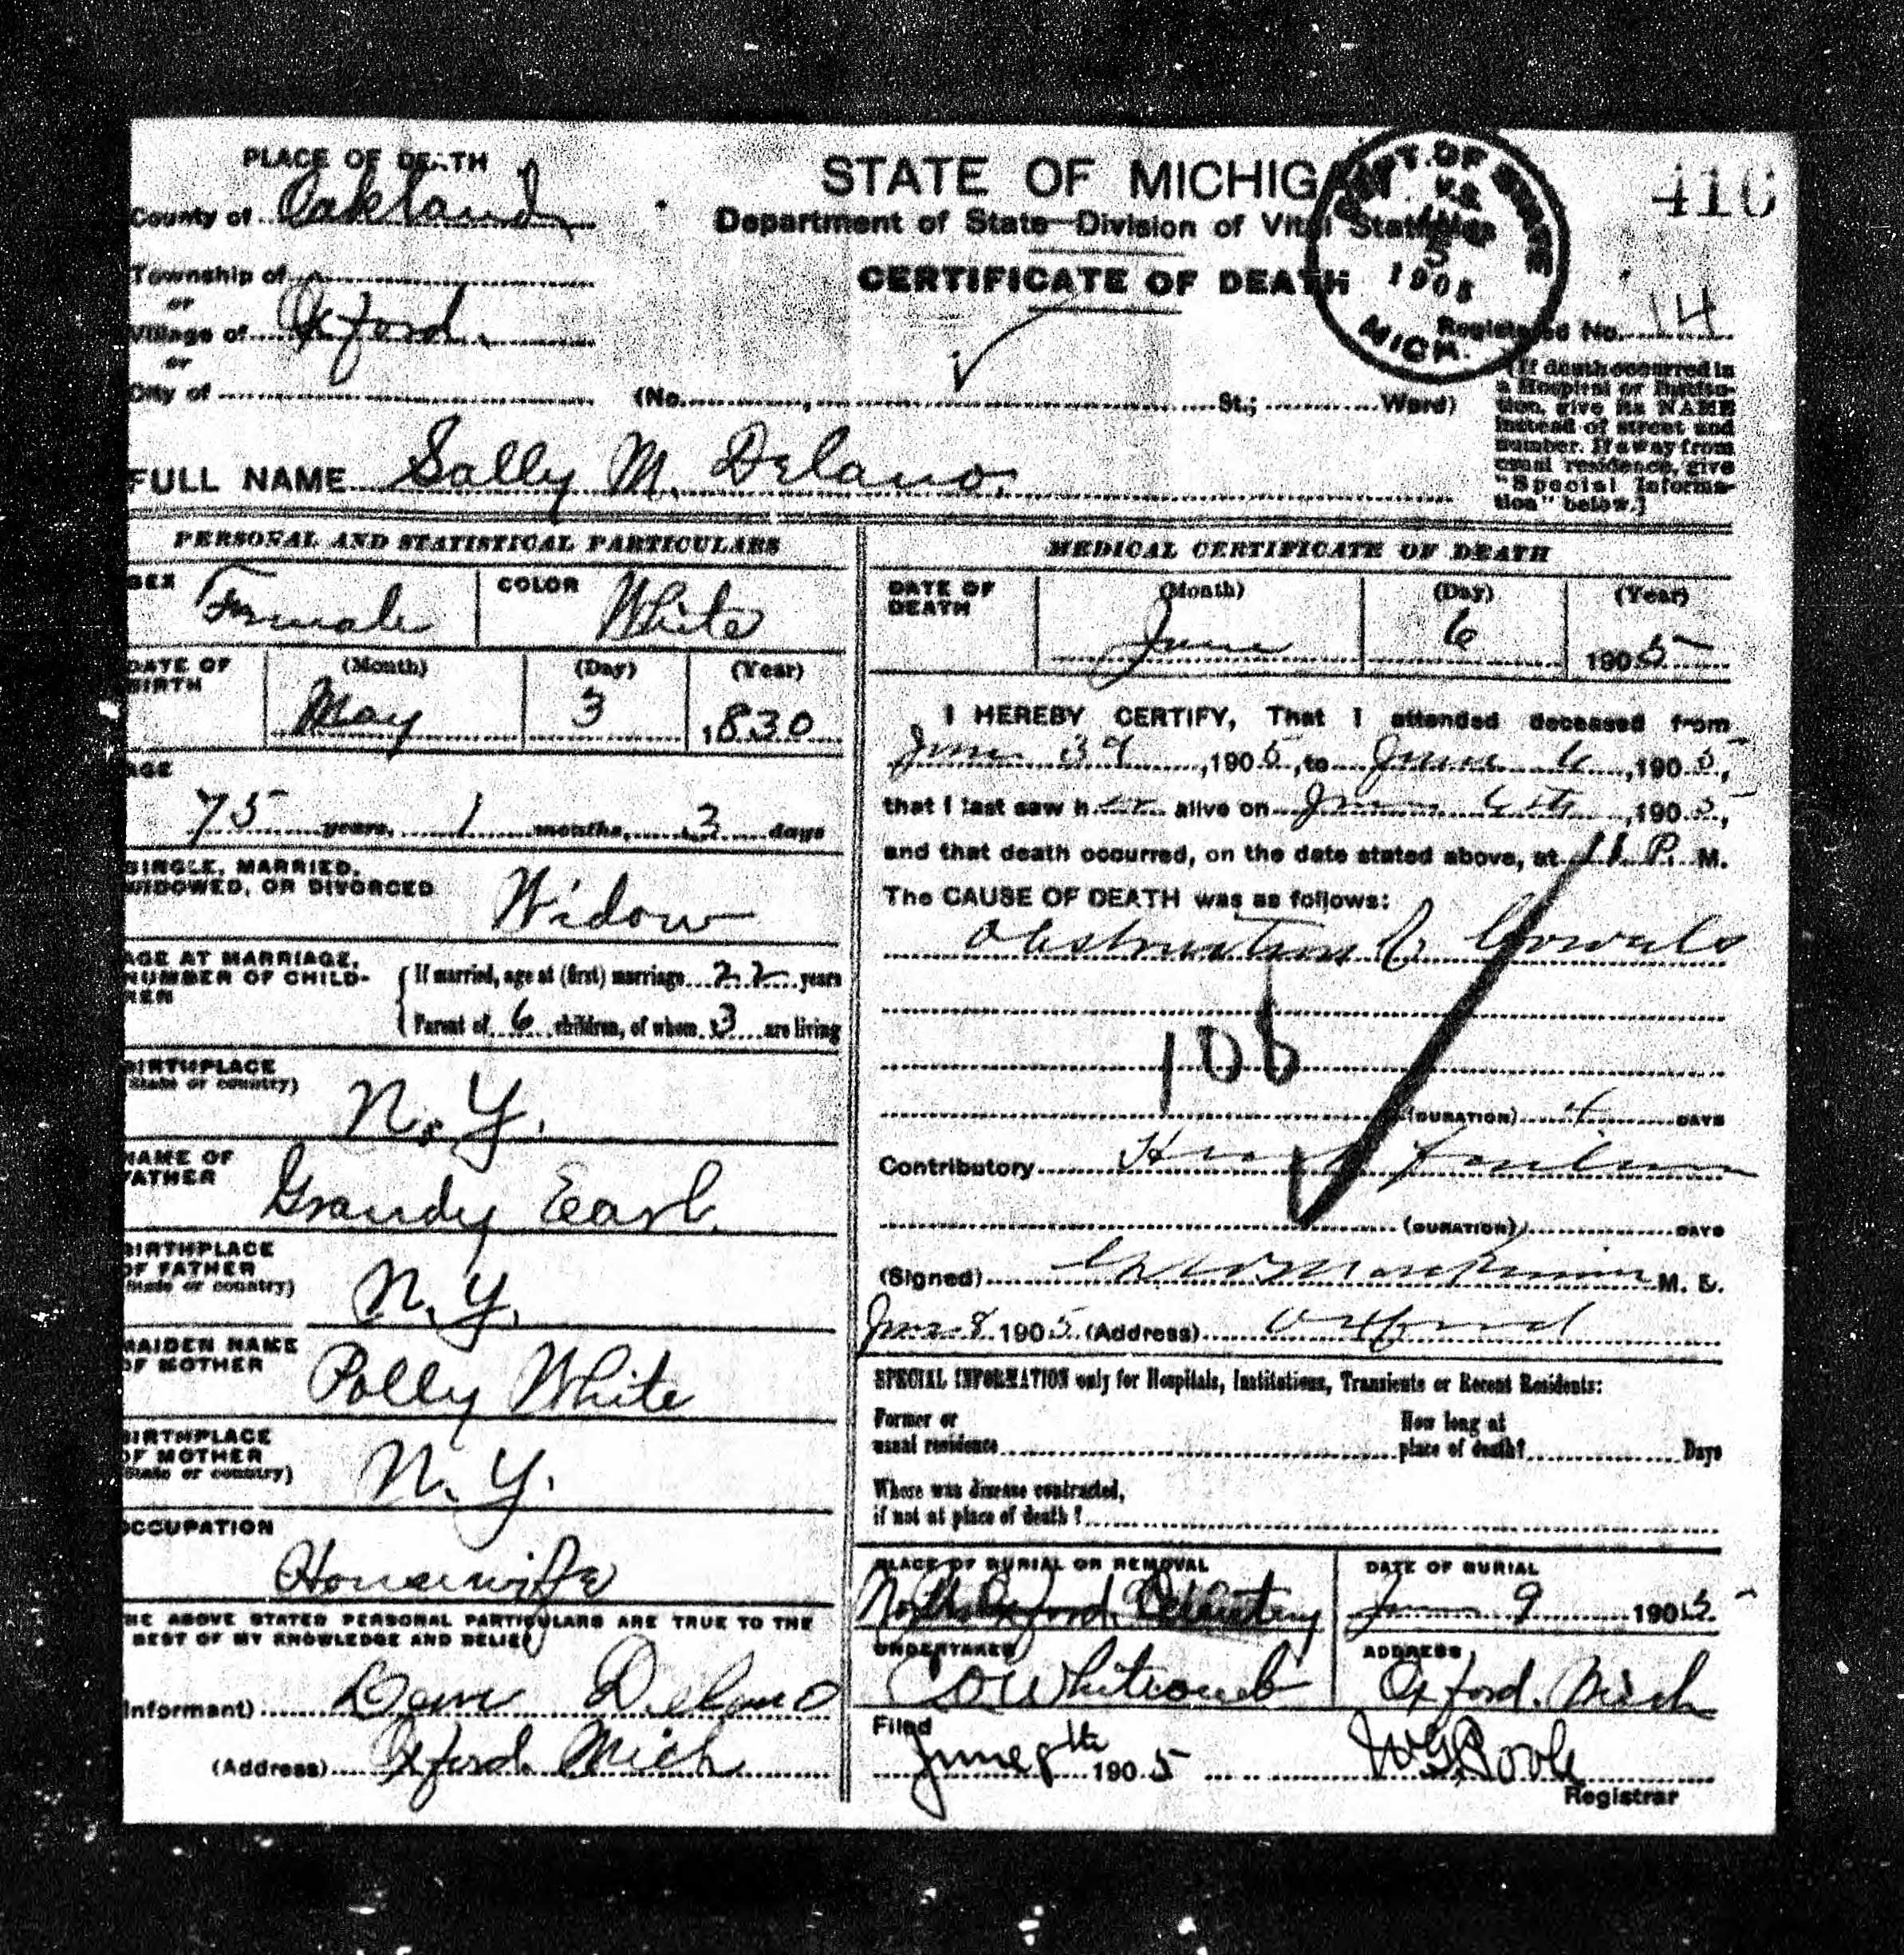 PLACE OF DEATH
County of Oakland
Township of
or
Village of Oxford.
or
City of
STATE OF MICHIGAN
Department of State—Division of Vital Statistics
CERTIFICATE OF DEATH
DEPT. OF STATE
5
1905
MICH.
416
Registered No. 14
(No. , St.; Ward)
(If death occurred in
a Hospital or Institu-
tion, give its NAME
instead of street and
number. If away from
usual residence, give
"Special Informa-
tion" below.)
FULL NAME Sally M. Delano.
PERSONAL AND STATISTICAL PARTICULARS
SEX Female COLOR White
DATE OF BIRTH (Month) (Day) (Year)
May 3 1830
AGE
75 years, 1 months, 2 days
SINGLE, MARRIED,
WIDOWED, OR DIVORCED Widow
AGE AT MARRIAGE,
NUMBER OF CHILD-
REN
If married, age at (first) marriage 22 years
Parent of 6 children, of whom 3 are living
BIRTHPLACE
(State or country) N.Y.
NAME OF
FATHER Grandy Earl.
BIRTHPLACE
OF FATHER
(State or country) N.Y.
MAIDEN NAME
OF MOTHER Polly White
BIRTHPLACE
OF MOTHER
(State or country) N.Y.
OCCUPATION
Housewife
THE ABOVE STATED PERSONAL PARTICULARS ARE TRUE TO THE
BEST OF MY KNOWLEDGE AND BELIEF
(Informant) Delano
(Address) Oxford Mich
MEDICAL CERTIFICATE OF DEATH
DATE OF DEATH (Month) (Day) (Year)
June 6 1905
I HEREBY CERTIFY, That I attended deceased from
June 3, 1905, to June 6, 1905,
that I last saw her alive on June 6th, 1905,
and that death occurred, on the date stated above, at 11 P. M.
The CAUSE OF DEATH was as follows:
Obstruction of bowels
106
(DURATION) 4 DAYS
Contributory Heart Failure
(DURATION) DAYS
(Signed) M. D.
June 8 1905 (Address) Oxford
SPECIAL INFORMATION only for Hospitals, Institutions, Transients or Recent Residents:
Former or
usual residence
How long at
place of death? Days
Where was disease contracted,
if not at place of death?
PLACE OF BURIAL OR REMOVAL
North Oxford Cemetery
DATE OF BURIAL
June 9 1905
UNDERTAKER
Whitcomb
ADDRESS
Oxford. Mich
Filed
June 8th 1905
Registrar